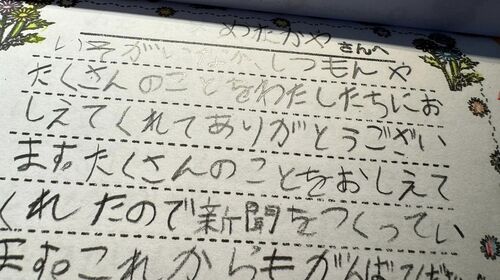 めだかやさんへ
いそがしいなか、しつもんや
たくさんのことをわたしたちにお
しえてくれてありがとうござい
ます。たくさんのことをおしえて
くれたので新聞をつくってい
ます。これからもがんばってくだ